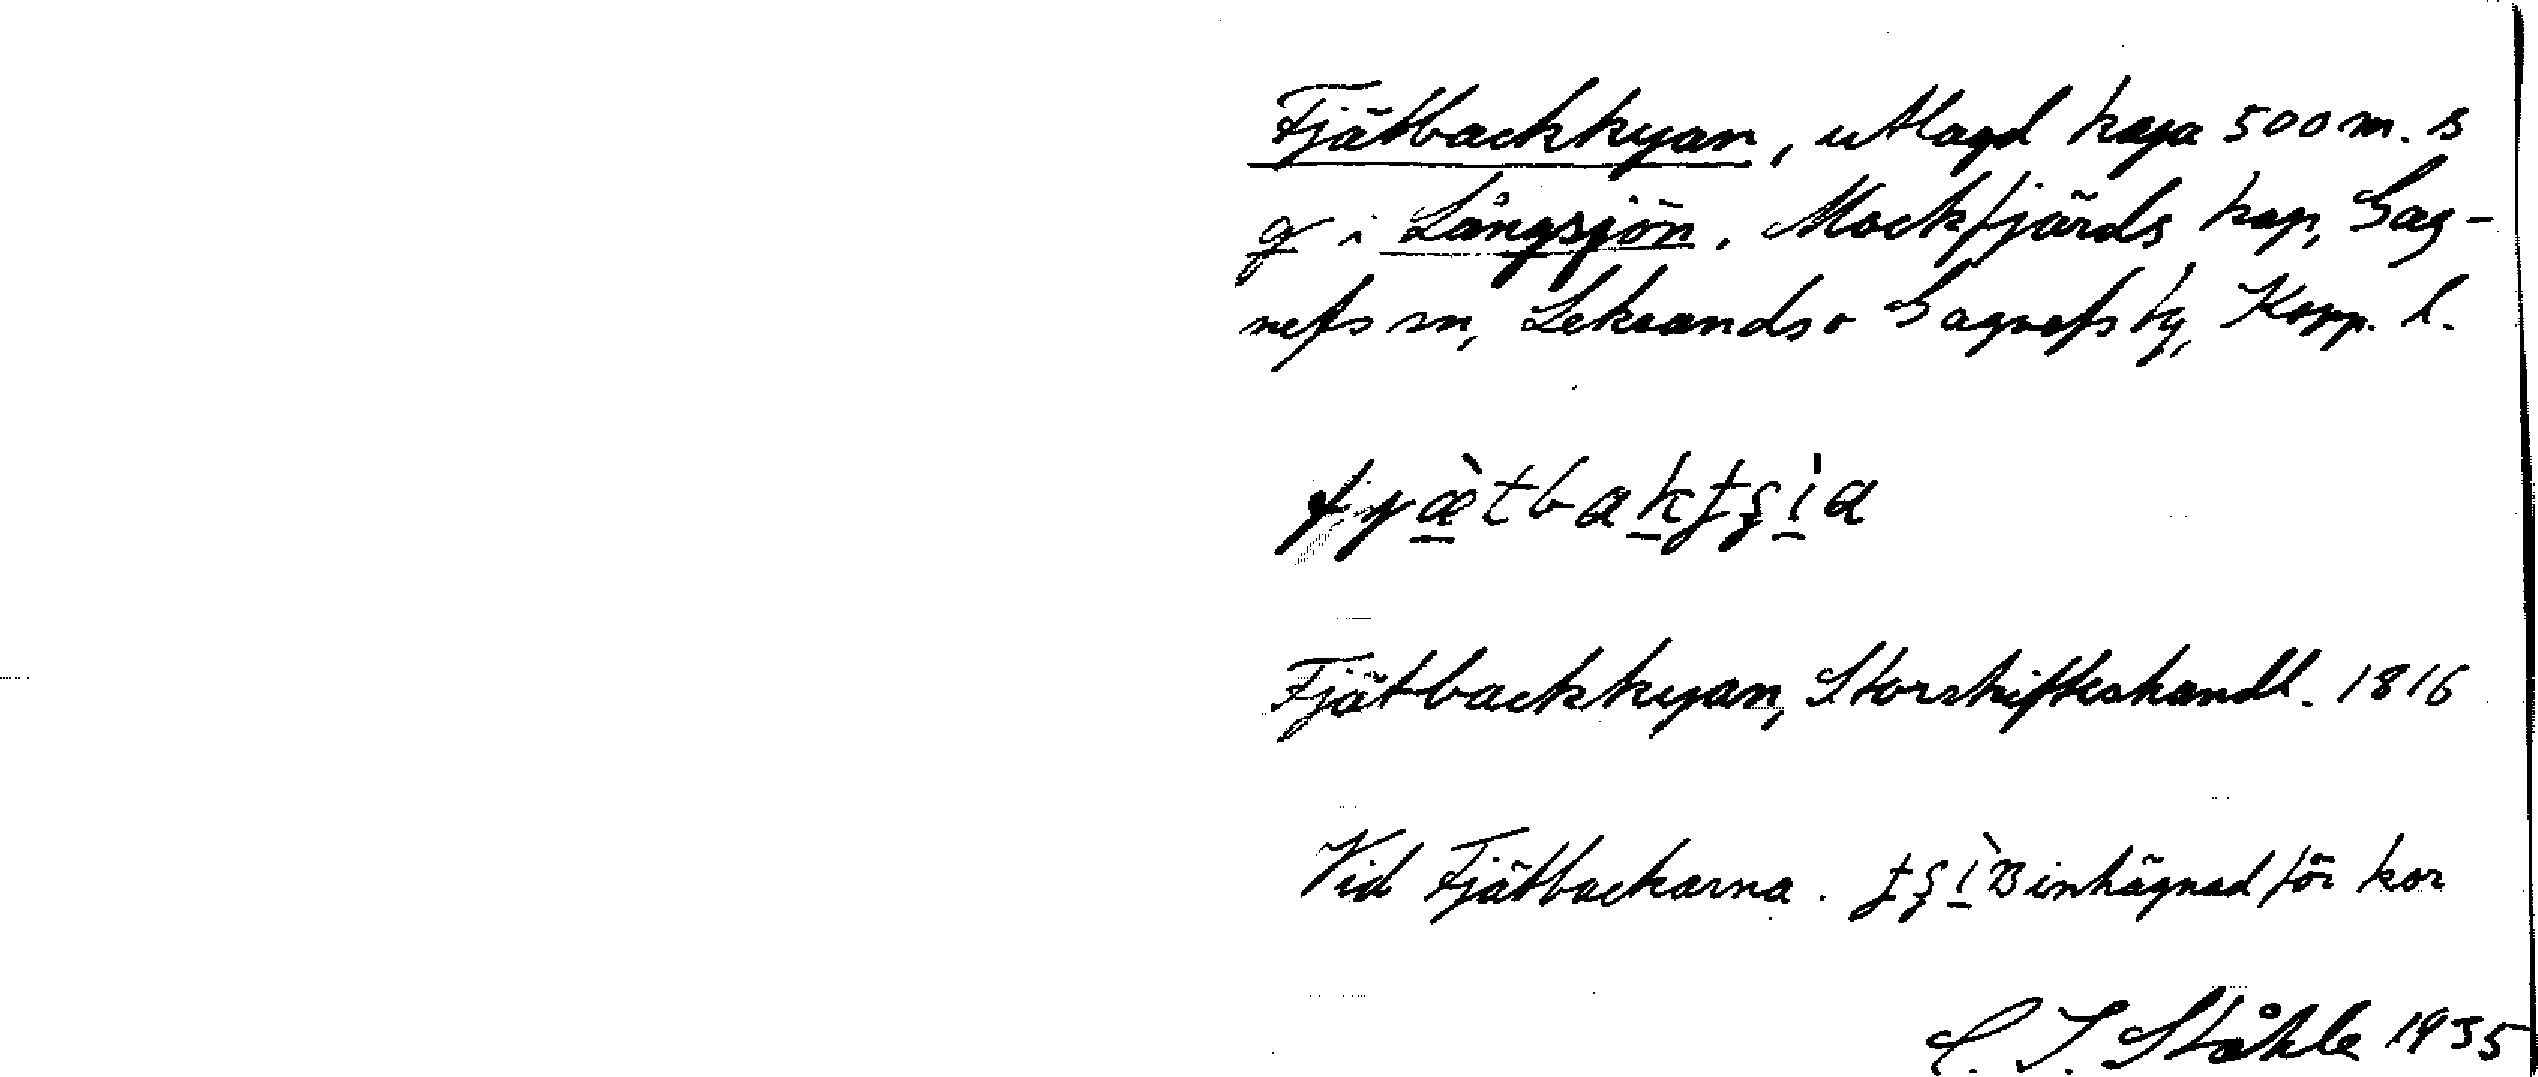 Fjätbackkyan, utlagd haga 500 m. s
g i Långsjön, Mockfjärds kap, Gag-
nefs sn, Leksands o Gagnefs tg, Kopp. l.
Fjätbackkyan, Storskifteshandl. 1816
Vid Fjätbackarna. inhägnad för kor
C. I. Ståhle 1935